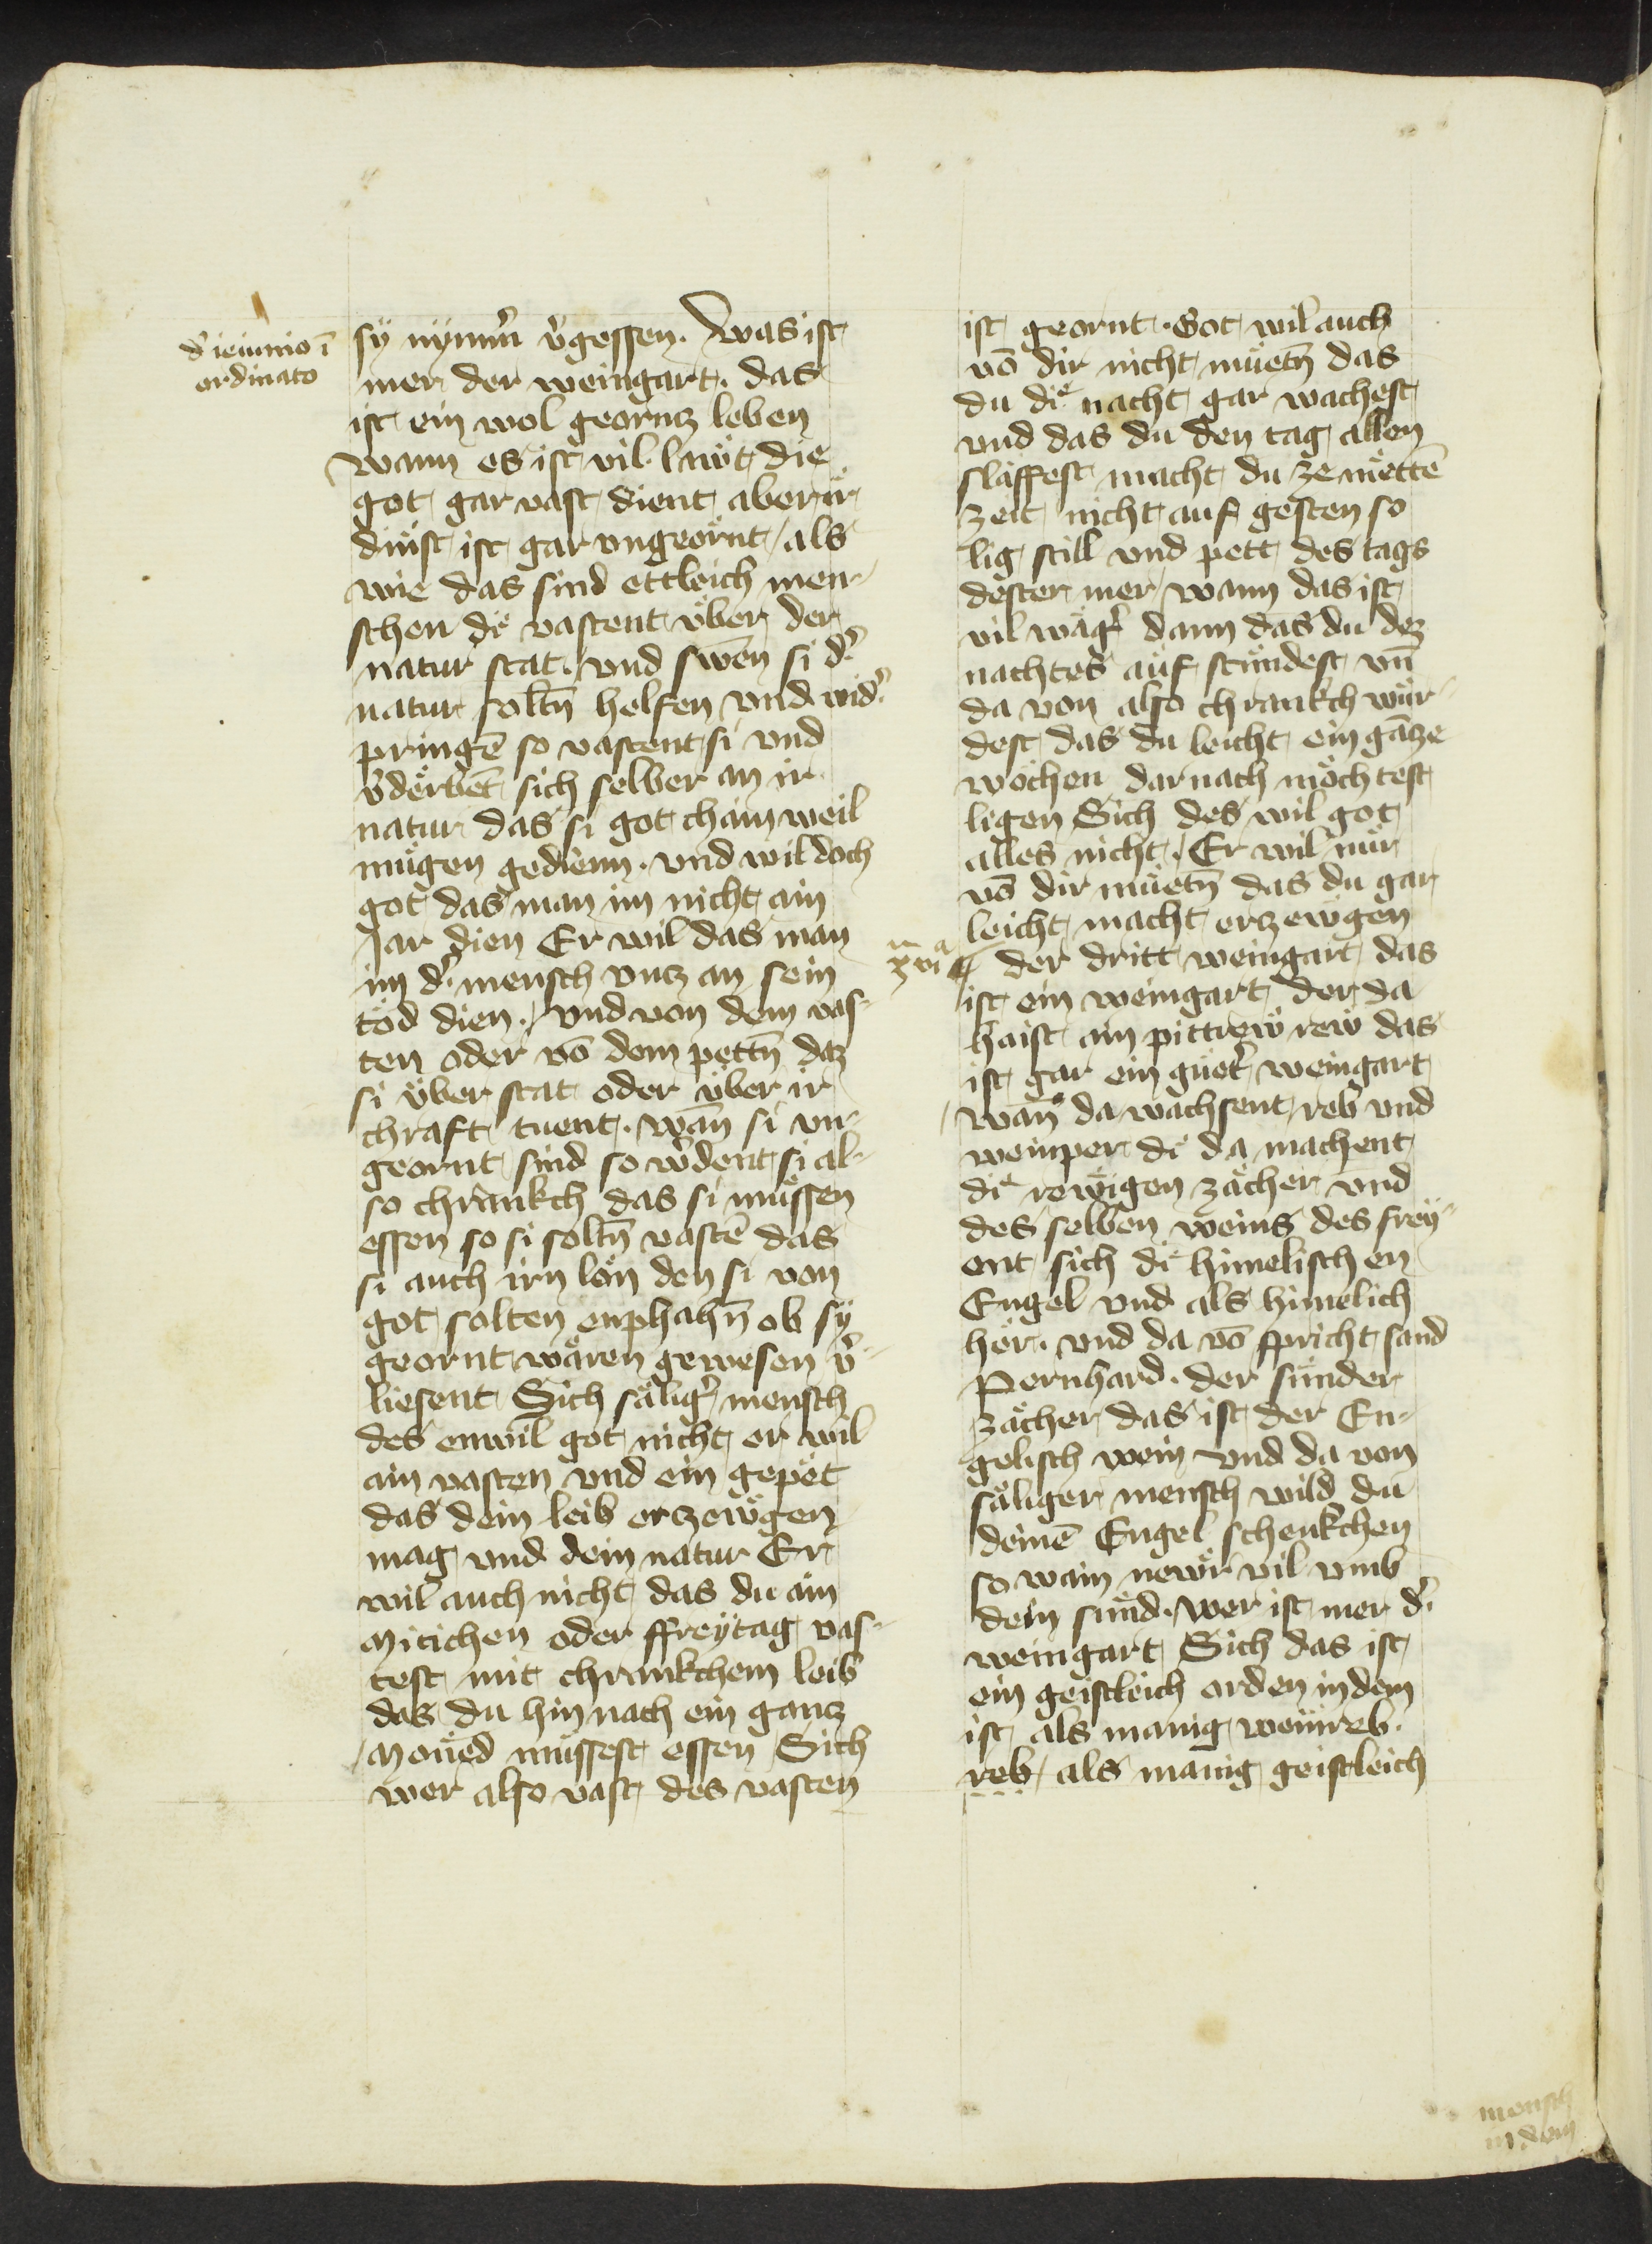 d' ieiunio ī
ordinato
sÿ nymm̄ v̾gessen. Was ist
mer der weingart. das
ist ein wol georntz leben
wann es ist vil lawt die
got gar vast dient aber ir
dinst ist gar vngeornt / als
wie das sind ettleich men-
schen die vastent vber der
natur stat. vnd swen si d̾
natur soltn̄ helfen vnd wid̾
pringē so vastent si vnd
v̾derbēt sich selber an ir
natur das si got chain weil
mugen gedienn. vnd wil doch
got das man im nicht ain
Jar dien Er wil das man
im d̾ mensch vntz an sein
tod dien. vnd von dem vas-
ten oder vō dem pettn̄ daz
si vber stat oder vber ir
chraft tuent. wan̄ si vn-
geornt sind so w̾dent si al-
so chrankch das si mussen
essen so si soltn̄ vastē das
si auch irn lon den si von
got solten enphahn̄ ob sÿ
geornt wären gewesen v̾-
liesent Sich sälig̾ mensch
des enwil got nicht er wil
ain vasten vnd ein gepet
das dein leib erzewgen
mag vnd dein natur Er
wil auch nicht das du ain
Mitichen oder ffreytag vas-
test mit chrankchem leib
das du hin nach ein gantz
Moned mussest essen Sich
wer also vast des vasten
ist geornt. Got wil auch
vō dir nicht muetn̄ das
du die nacht gar wachest
vnd das du den tag allen
slaffest macht du ze mettē
zeit nicht auf gesten so
lig still vnd pett des tags
dester mer wann das ist
vil wäg̾ dann das du dez
nachtes auf stundest vn̄
da von also chrankch wur-
dest das du leicht ein gāze
wochen darnach mochtest
ligen Sich des wil got
alles nicht. Er wil nur
vō dir muetn̄ das du gar
leicht macht erzewgen
xvi
der dritt weingart das
ist ein weingart der da
haist ain pittrew rew das
ist gar ein guet̾ weingart
wan̄ da wachsent reb vnd
weinper di da machent
die rewigen zächer vnd
des selben weins des frey-
ent sich die himelischen
Engel vnd als himelich
her. vnd da vō spricht sand
Pernhard. der sunder
zächer das ist der En-
gelisch wein vnd da von
säliger mensch wild du
deinē Engel schenkchen
so wain newr vil vmb
dein sund. wer ist mer d̾
weingart Sich das ist
ein geistleich orden in dem
ist als manig weinreb.
reb / als manig geistleich
mensch
in dem